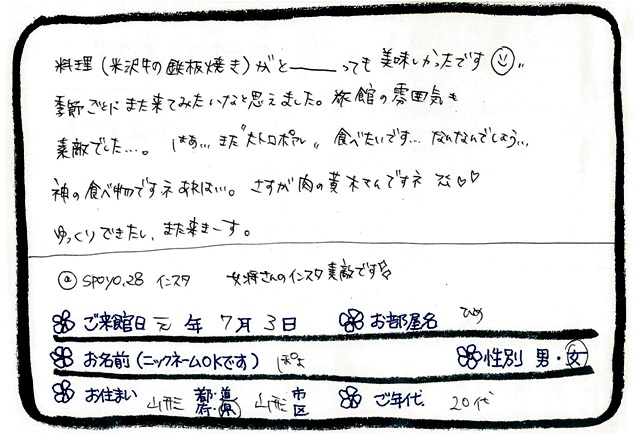 料理(米沢牛の鉄板焼き)がと――っても美味しかったです☺!!
季節ごとにまた来てみたいなと思えました。旅館の雰囲気も
素敵でした…。 はぁ… また 食べたいです… なんなんでしょう…
神の食べ物ですネあれは…。 さすが肉の黄木さんですネ ♡♡
ゆっくりできたし、また来まーす。
@ spoyo.28 インスタ 女将さんのインスタ素敵です☆
ご来館日 元 年 7 月 3 日 お部屋名 ひめ
お名前(ニックネームOKです) ぽよ 性別 男・女
お住まい 山形 都・道府・県 山形 市区 ご年代. 20代